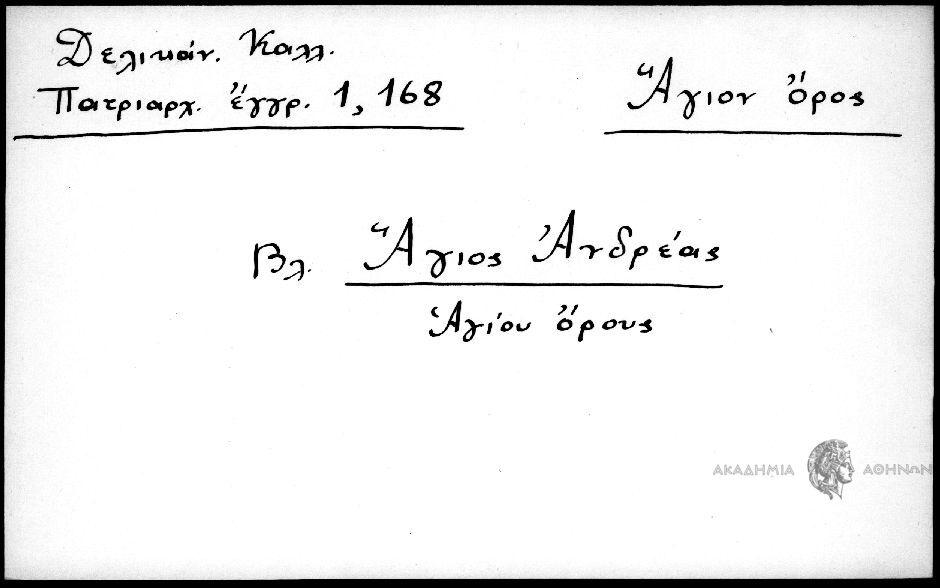 Δελικάν. Καλλ.
Πατριαρχ. ἔγγρ. 1, 168
Ἅγιον ὄρος
Βλ. Ἅγιος Ἀνδρέας
Ἁγίου ὄρους
ΑΚΑΔΗΜΙΑ ΑΘΗΝΩΝ